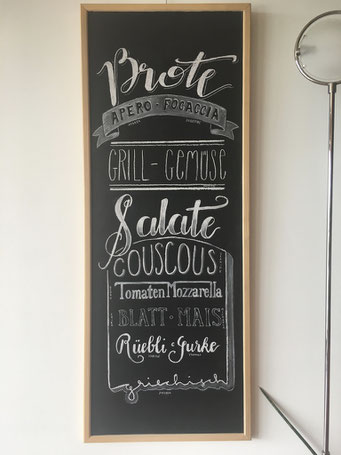 Brote
APERO - FOCACCIA
GRILL - GEMÜSE
Salate
COUSCOUS
Tomaten Mozzarella
BLATT - MAIS
Rüebli - Gurke
griechisch